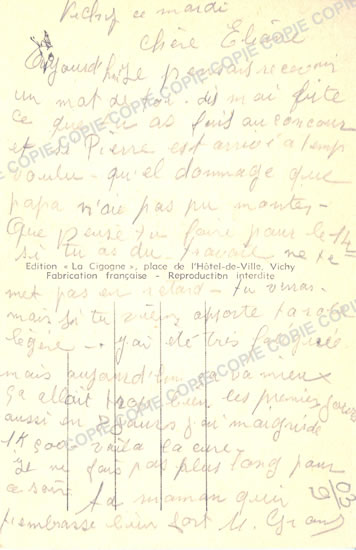 Vichy ce mardi
chère Eliane
Aujourd'hui je pensais recevoir
un mot de toi. dis mai faite
ce que tu as fais au concour
et si Pierre est arrivé a temp
voulu - qu'el dommage que
papa n'aie pas pu monter -
Que pense tu faire pour le 14
si tu as du travail ne te
Edition « La Cigogne », place de l'Hôtel-de-Ville, Vichy
Fabrication française - Reproduction interdite
met pas en retard - tu verras
mais si tu viens apporte ta robe
légère - j'ai été très fatiguée
mais aujourd'hui va mieux
ça allait trop bien les premiers jours
aussi en 8 jours j'ai maigri de
1K500 voila la cure -
Je ne fais pas plus long pour
ce soir
ta maman qui
t'embrasse bien fort M.
COPIE COPIE COPIE COPIE COPIE COPIE